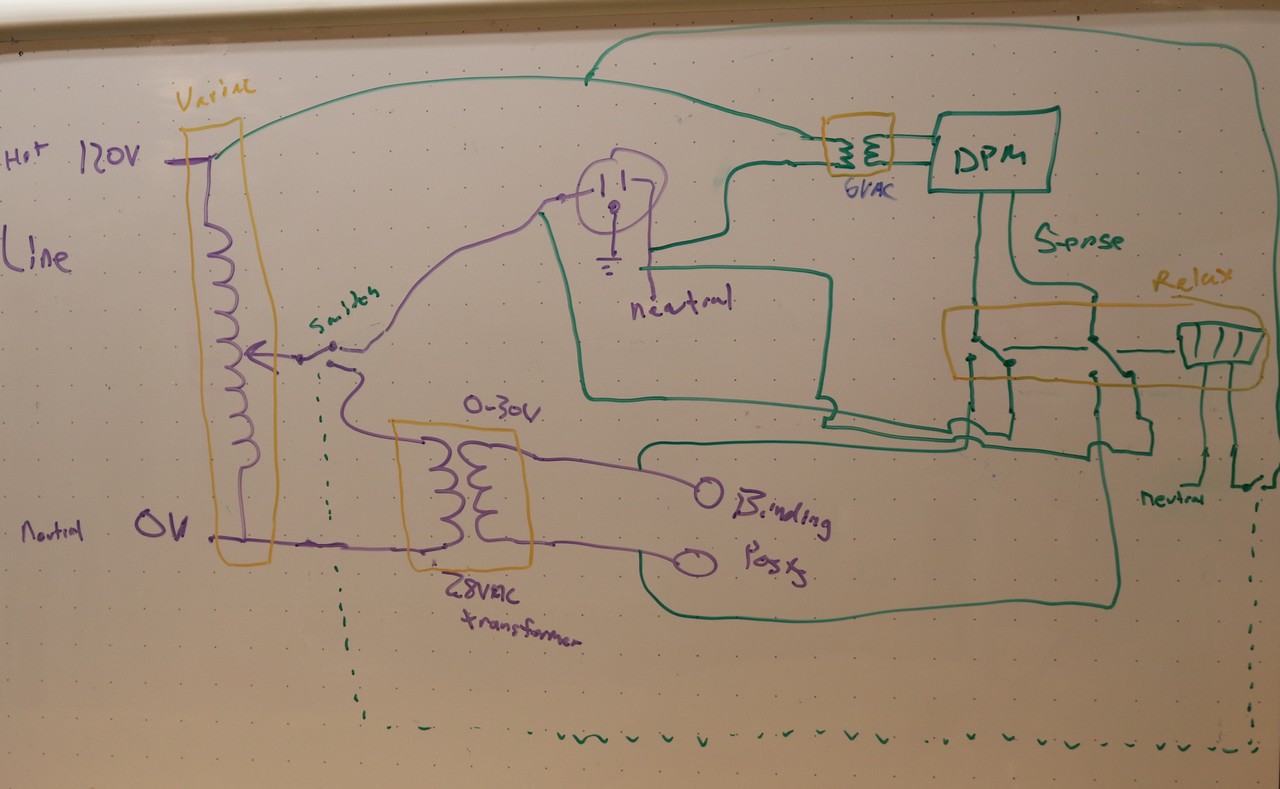 Variac
Hot 120V
Line
Switch
Neutral 0V
0-30V
28VAC
transformer
neutral
Binding
Posts
6VAC
DPM
Sense
Relay
neutral